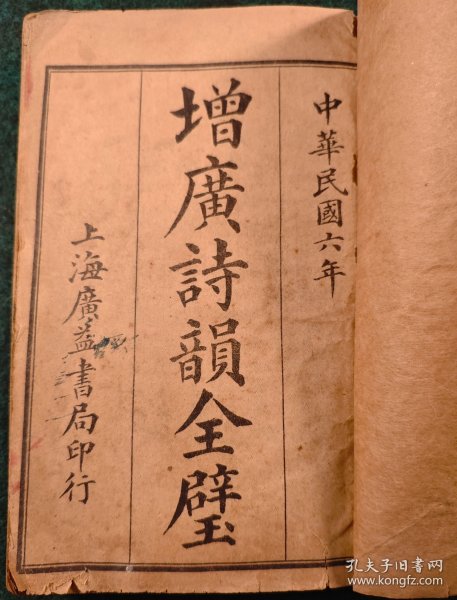 中華民國六年
增廣詩韻全璧
上海廣益書局印行
孔夫子旧书网
www.kongfz.com